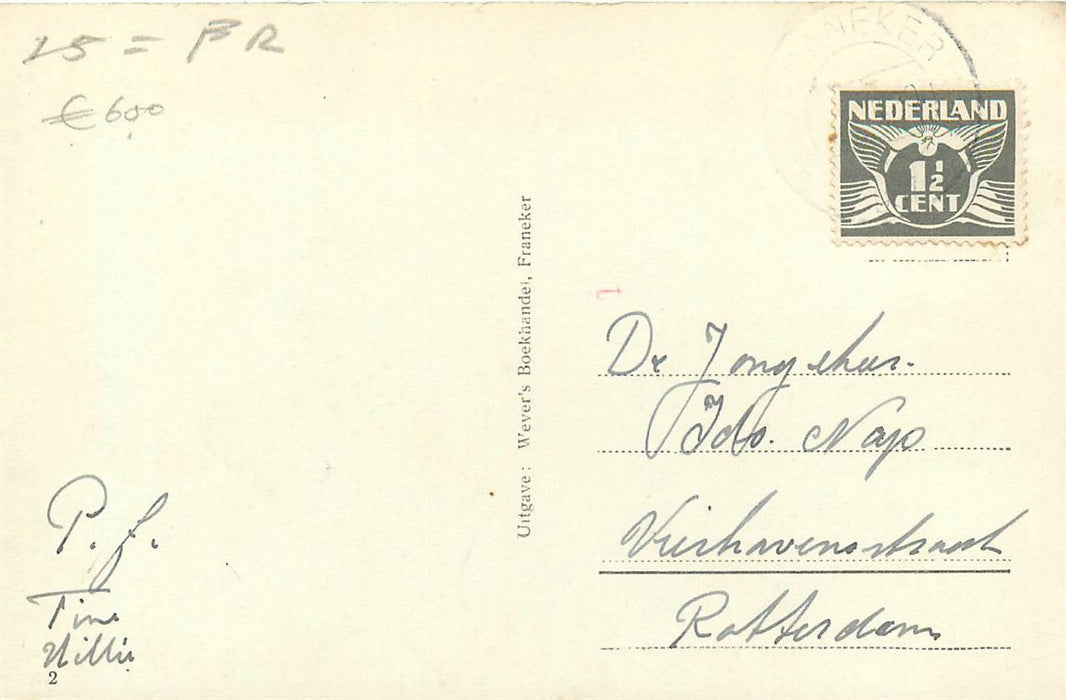 25 = FR
€ 600
FRANEKER
NEDERLAND
1½
CENT
Uitgave: Wever's Boekhandel, Franeker
1
De Jongeheer
Ids. Nap
Vierhavensstraat
Rotterdam
P. f.
Tine
Willie
2